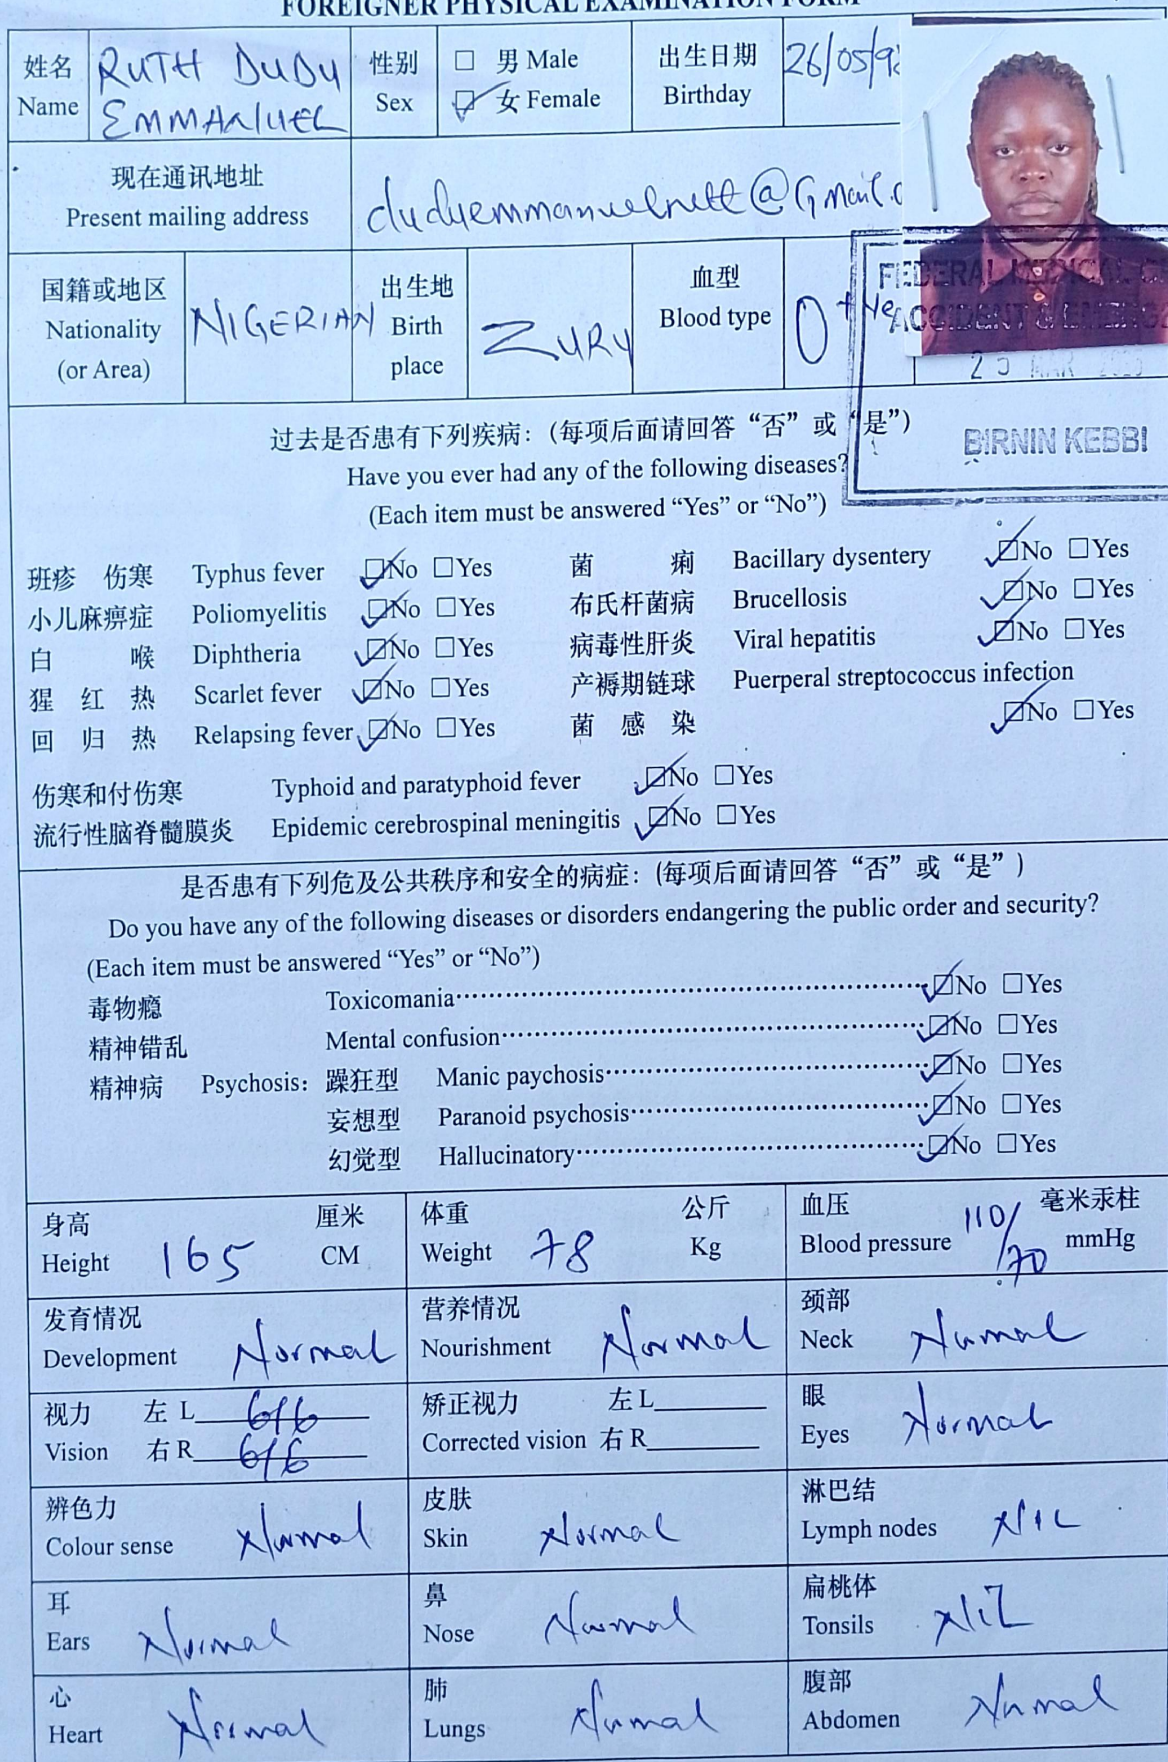 FOREIGNER PHYSICAL EXAMINATION FORM
姓名 Name RUTH DUDU EMMANUEL
性别 Sex □ 男 Male ☑ 女 Female
出生日期 Birthday 26/05/9
现在通讯地址
Present mailing address
@Gmail.c
国籍或地区 Nationality (or Area) NIGERIAN
出生地 Birth place ZURU
血型 Blood type O+ve
FEDERAL MEDICAL C
ACCIDENT & EMERG
MAR
BIRNIN KEBBI
过去是否患有下列疾病：（每项后面请回答“否”或“是”）
Have you ever had any of the following diseases?
(Each item must be answered “Yes” or “No”)
班疹 伤寒 Typhus fever ☑No □Yes 菌 痢 Bacillary dysentery ☑No □Yes
小儿麻痹症 Poliomyelitis ☑No □Yes 布氏杆菌病 Brucellosis ☑No □Yes
白 喉 Diphtheria ☑No □Yes 病毒性肝炎 Viral hepatitis ☑No □Yes
猩 红 热 Scarlet fever ☑No □Yes 产褥期链球 Puerperal streptococcus infection
回 归 热 Relapsing fever ☑No □Yes 菌 感 染 ☑No □Yes
伤寒和付伤寒 Typhoid and paratyphoid fever ☑No □Yes
流行性脑脊髓膜炎 Epidemic cerebrospinal meningitis ☑No □Yes
是否患有下列危及公共秩序和安全的病症：(每项后面请回答“否”或“是”)
Do you have any of the following diseases or disorders endangering the public order and security?
(Each item must be answered “Yes” or “No”)
毒物瘾 Toxicomania ☑No □Yes
精神错乱 Mental confusion ☑No □Yes
精神病 Psychosis: 躁狂型 Manic paychosis ☑No □Yes
妄想型 Paranoid psychosis ☑No □Yes
幻觉型 Hallucinatory ☑No □Yes
身高 Height 165 厘米 CM
体重 Weight 78 公斤 Kg
血压 Blood pressure 110/70 毫米汞柱 mmHg
发育情况 Development Normal
营养情况 Nourishment Normal
颈部 Neck Normal
视力 Vision 左 L 6/6 右 R 6/6
矫正视力 Corrected vision 左 L 右 R
眼 Eyes Normal
辨色力 Colour sense Normal
皮肤 Skin Normal
淋巴结 Lymph nodes NIL
耳 Ears Normal
鼻 Nose Normal
扁桃体 Tonsils NIL
心 Heart Normal
肺 Lungs Normal
腹部 Abdomen Normal